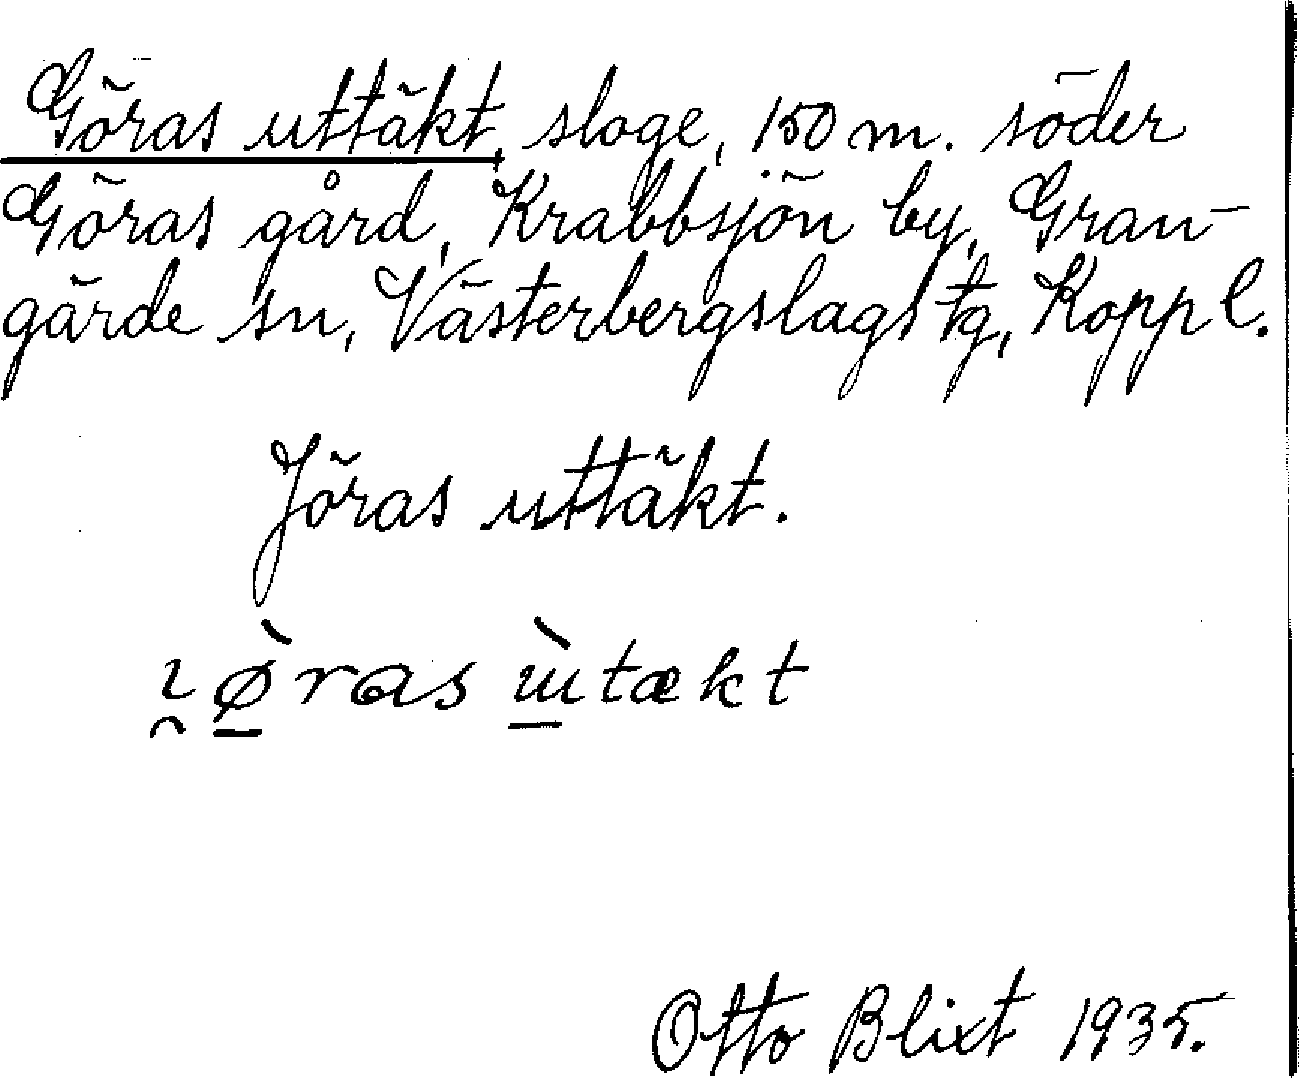 Göras uttäkt, sloge, 150 m. söder
Göras gård, Krabbsjön by, Gran-
gärde sn, Västerbergslags tg, Kopp l.
Jöras uttäkt.
ı̯ø̠̀ras ɯ̠̀tækt
Otto Blixt 1935.